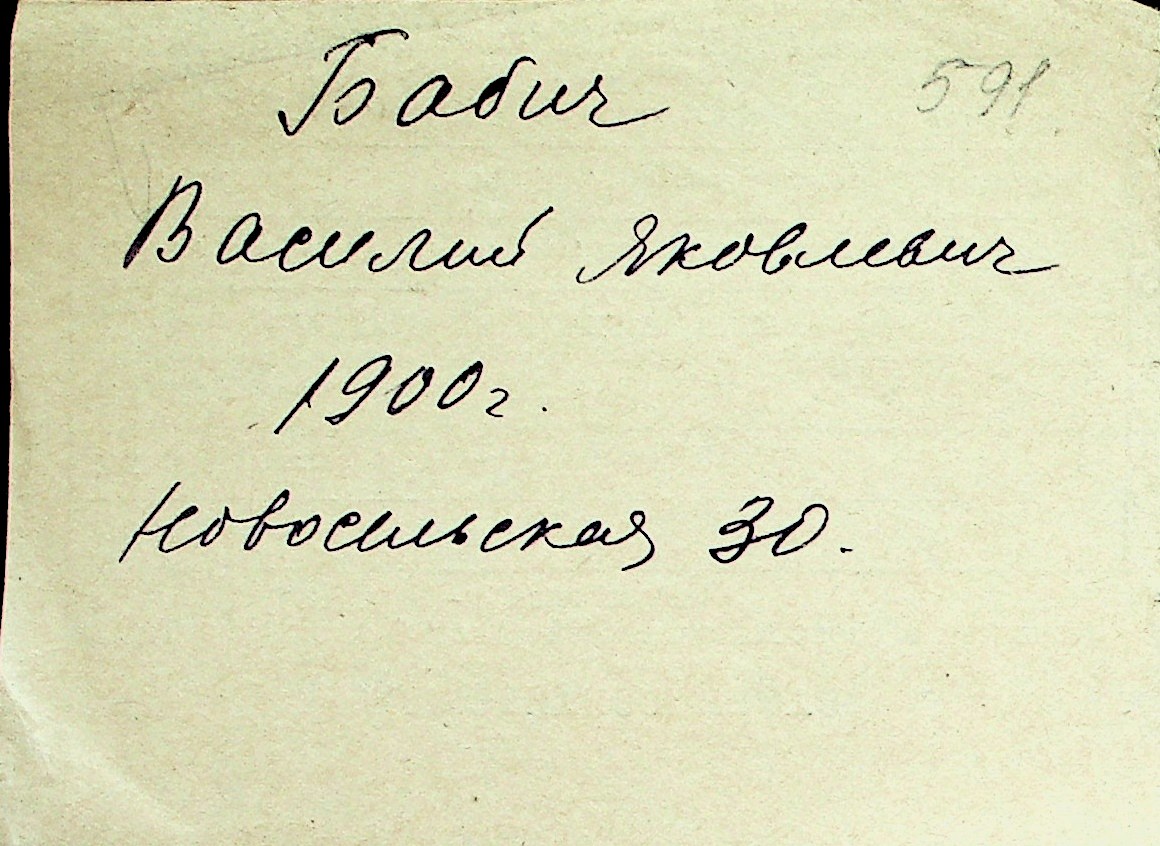 Бабич 591
Василий Яковлевич
1900г.
Новосельская 30.